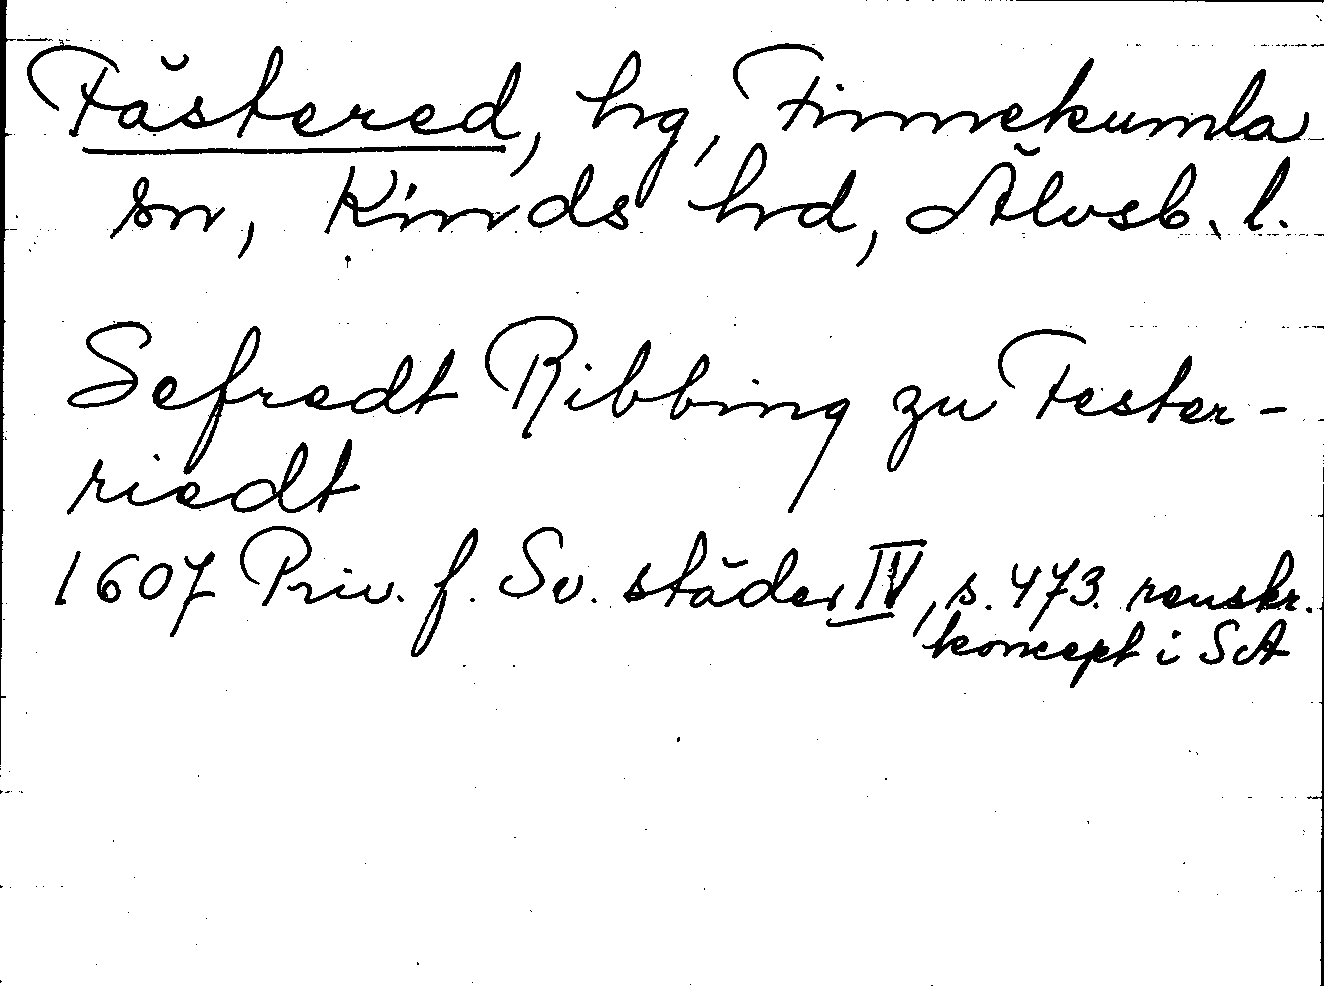 Fästered, hg, Finnekumla
sn, Kinds hrd, Älvsb. l.
Sefredt Ribbing zu Fester-
riedt
1607 Priv. f. Sv. städer IV, s. 473. renskr.
koncept i SdA